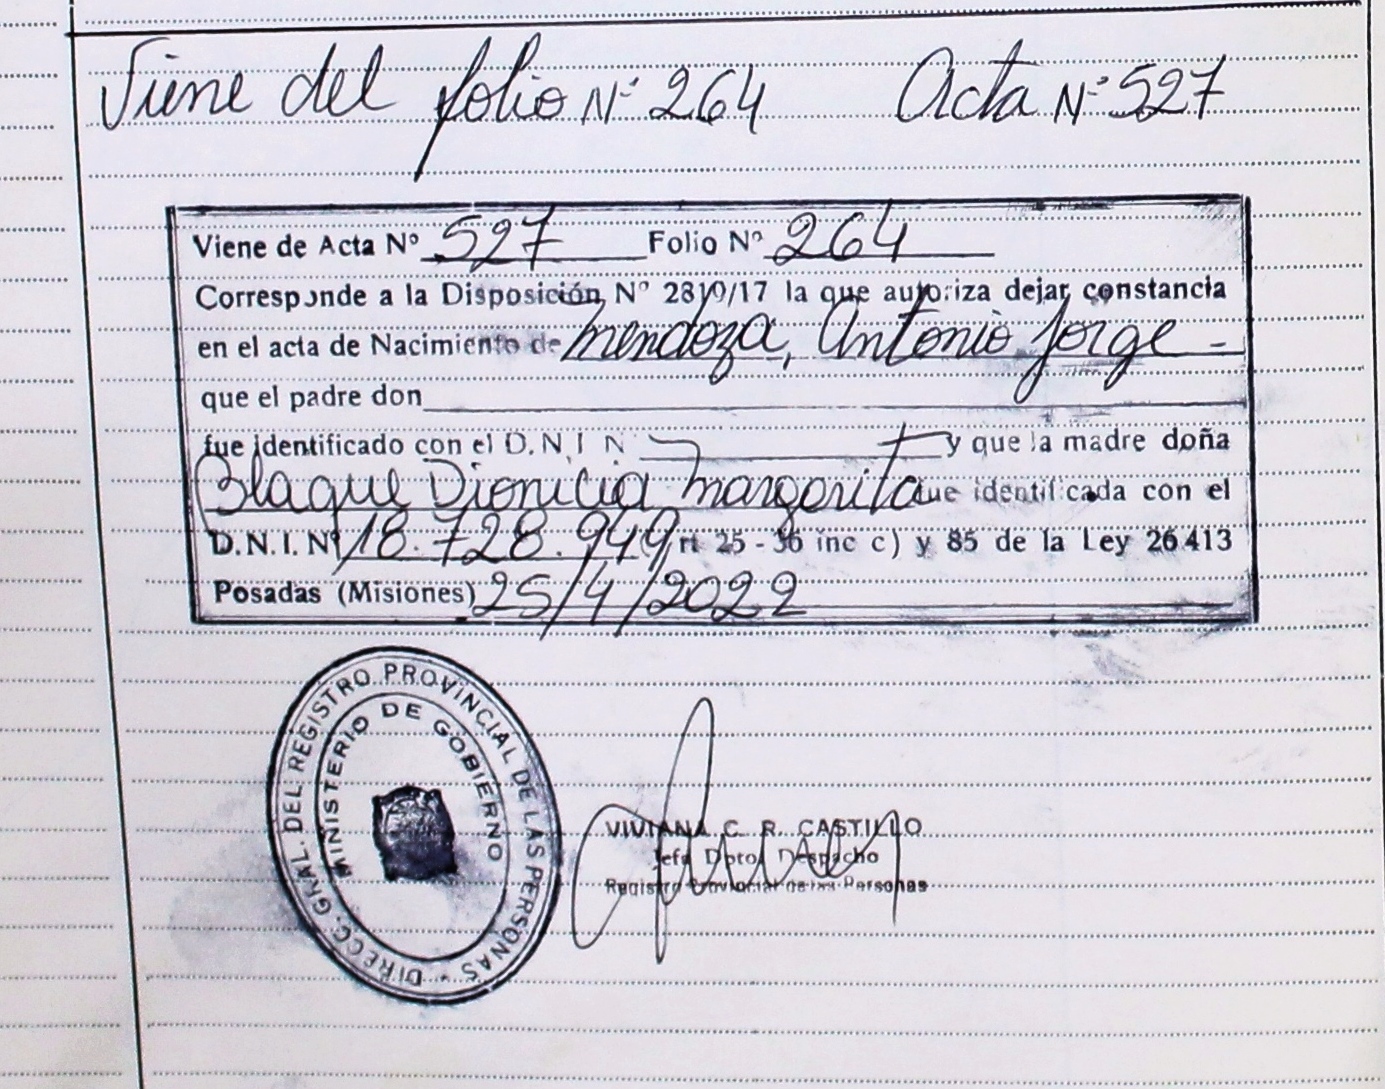 Viene del folio Nº 264 Acta Nº 527
Viene de Acta Nº 527 Folio Nº 264
Corresponde a la Disposición Nº 2810/17 la que autoriza dejar constancia
en el acta de Nacimiento de Mendoza, Antonio Jorge -
que el padre don
fue identificado con el D.N.I N y que la madre doña
Blaque Dionicia Margarita que identificada con el
D.N.I. Nº 18.728.949 Art 25 - 36 inc c) y 85 de la Ley 26.413
Posadas (Misiones) 25/4/2022
DIRECC. GRAL. DEL REGISTRO PROVINCIAL DE LAS PERSONAS -
MINISTERIO DE GOBIERNO
VIVIANA C. R. CASTILLO
Jefa Dpto. Despacho
Registro Provincial de las Personas